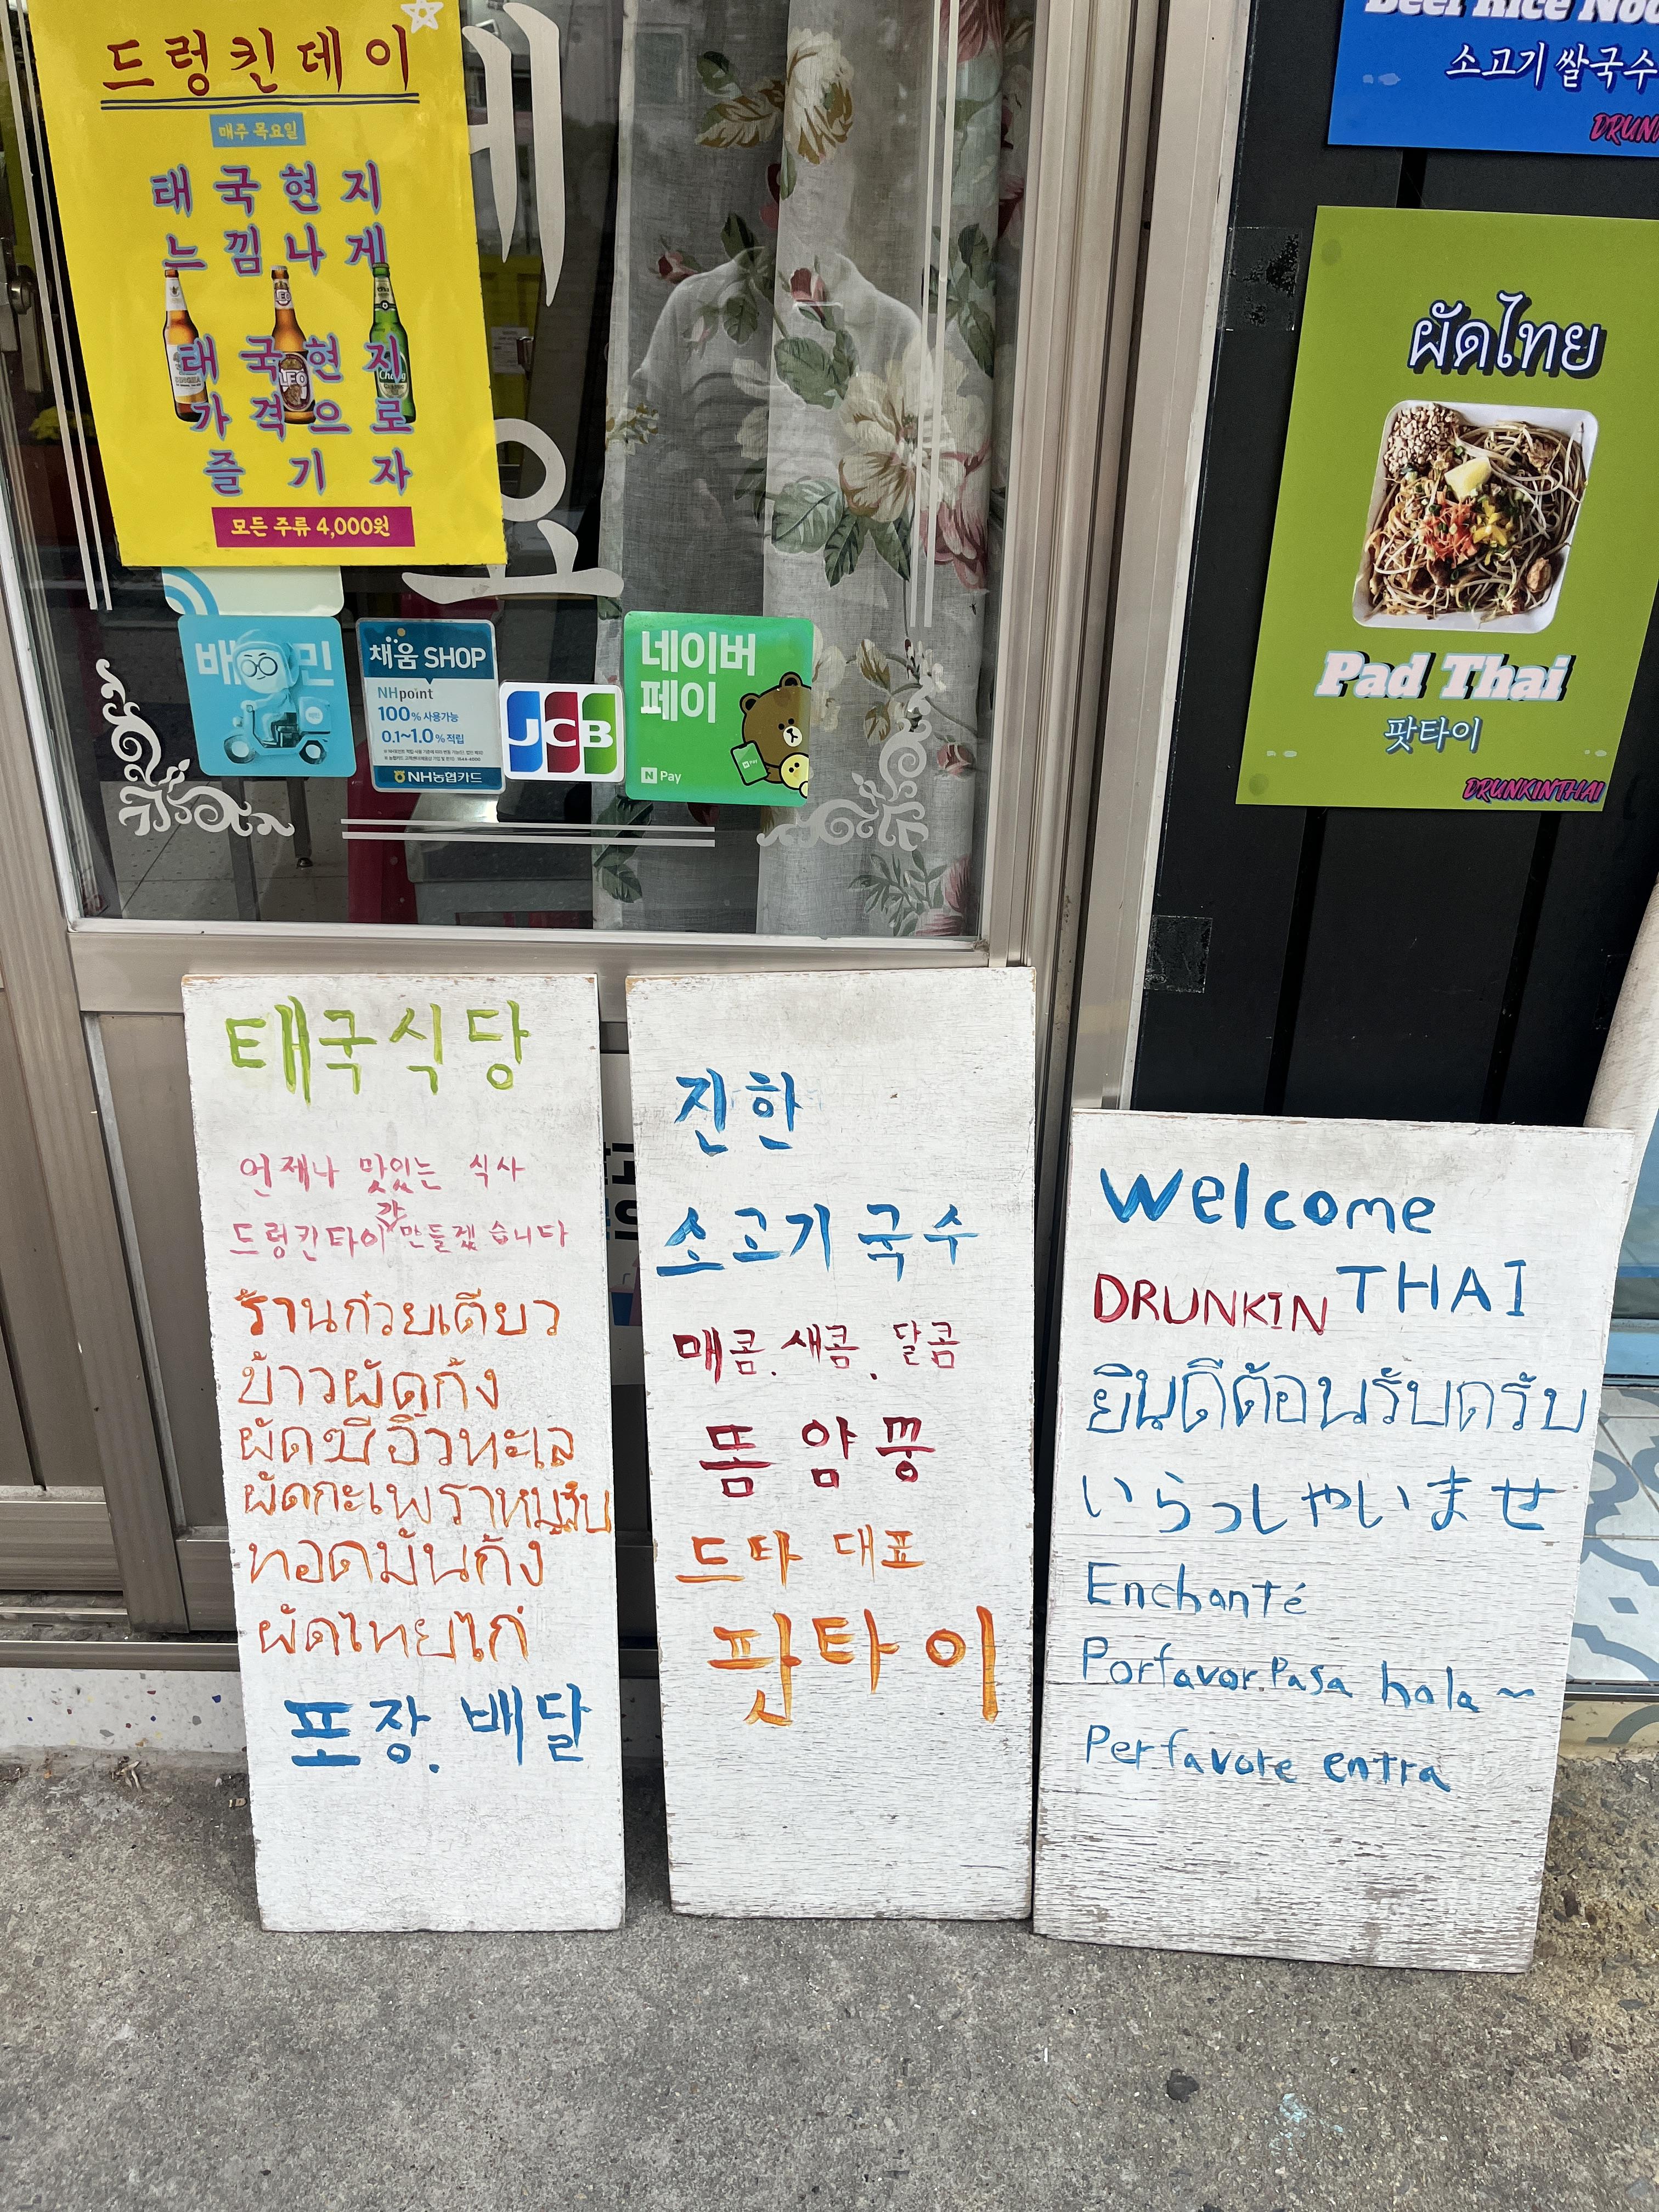 드렁킨데이
매주 목요일
태국현지
느낌나게
태국현지
가격으로
즐기자
LEO
Chang
모든 주류 4,000원
요
배민
채움 SHOP
NHpoint
100% 사용가능
0.1~1.0% 적립
NH농협카드
JCB
네이버
페이
N Pay
Beef Rice
소고기 쌀국수
ผัดไทย
Pad Thai
팟타이
DRUNKINTHAI
태국식당
언제나 맛있는 식사
드렁킨타이가 만들겠습니다
ร้านก๋วยเตียว
ข้าวผัดกุ้ง
ผัดซีอิ๊วทะเล
ผัดกะเพราหมูสับ
ทอดมันกุ้ง
ผัดไทยไก่
포장. 배달
진한
소고기국수
매콤. 새콤. 달콤
똠얌꿍
드타 대표
팟타이
Welcome
DRUNKIN THAI
ยินดีต้อนรับครับ
いらっしゃいませ
Enchanté
Porfavor. Pasa hola ~
Perfavore entra